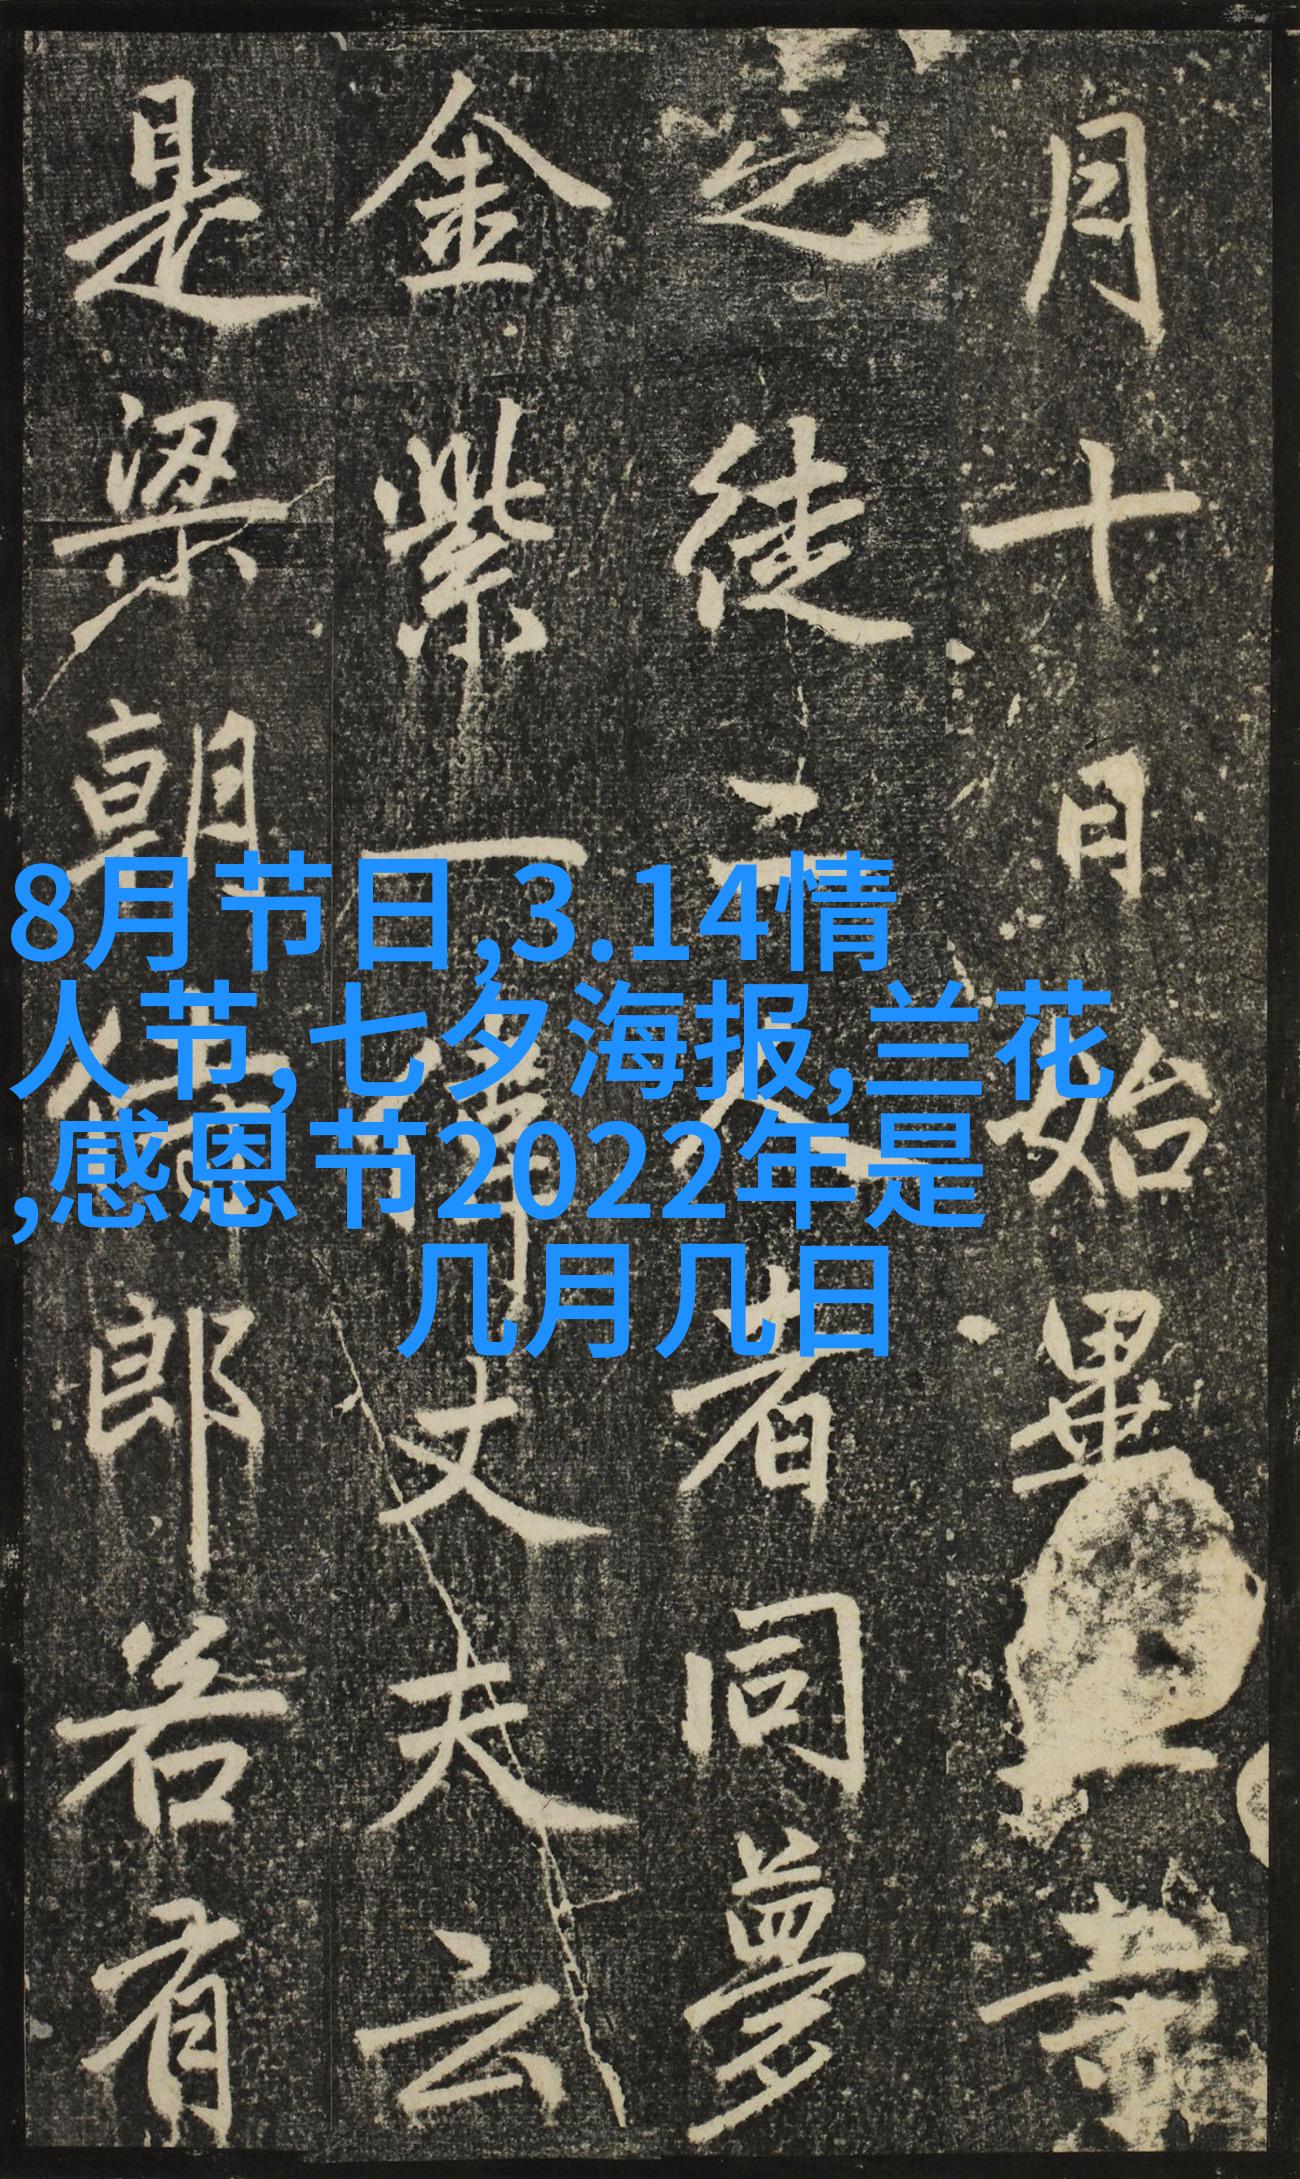 月十日始畢
之徒二人者同夢
金紫一偉丈夫云
是梁朝侍郎若有
8月节日,3.14情
人节,七夕海报,兰花
,感恩节2022年是
几月几日